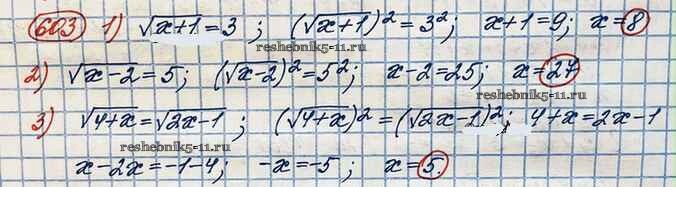 603 1) √(x+1) = 3 ; (√(x+1))² = 3²; x+1=9; x=8
reshebnik5-11.ru
2) √(x-2) = 5; (√(x-2))² = 5²; x-2=25; x=27
reshebnik5-11.ru
3) √(4+x) = √(2x-1) ; (√(4+x))² = (√(2x-1))²; 4+x=2x-1
reshebnik5-11.ru
x-2x=-1-4; -x=-5; x=5.